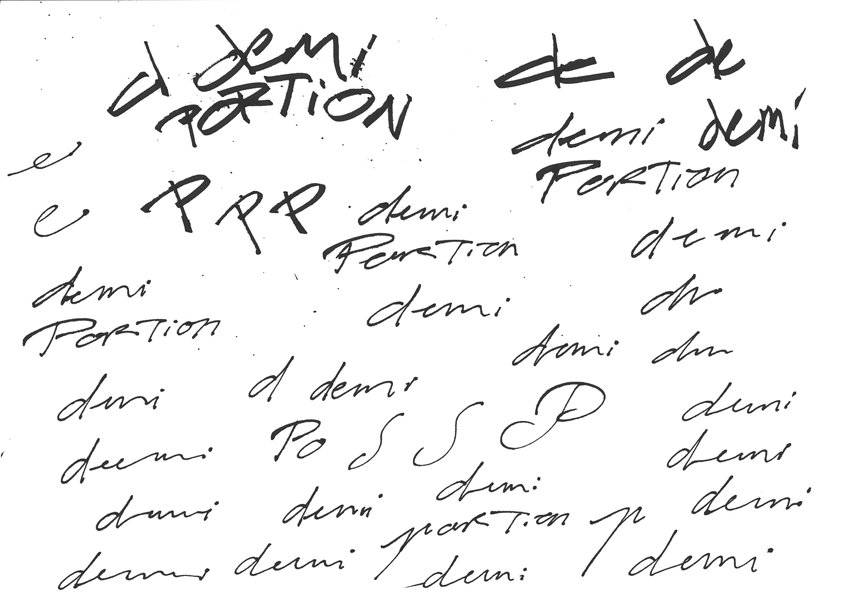 d demi de de
PORTION
demi demi
e PORTION
e P P P demi
PORTION demi
demi demi
PORTION
demi
demi d demi demi
Po S S P
demi demi
demi demi demi
portion p
demi demi demi demi